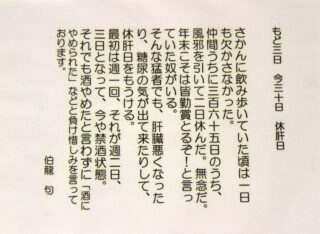 もと三日　今三十日　休肝日
さかんに飲み歩いていた頃は一日
も欠かさなかった。
仲間うちに三百六十五日のうち、
風邪を引いて二日休んだ。無念だ。
年末こそは皆勤賞とるぞ！と言っ
ていた奴がいる。
そんな猛者でも、肝臓悪くなった
り、糖尿の気が出て来たりして、
休肝日をもうける。
最初は週一回、それが週二日、
三日となって、今や禁酒状態。
それでも酒やめたと言わずに「酒に
やめられた」などと負け惜しみを言って
おります。
伯龍　句